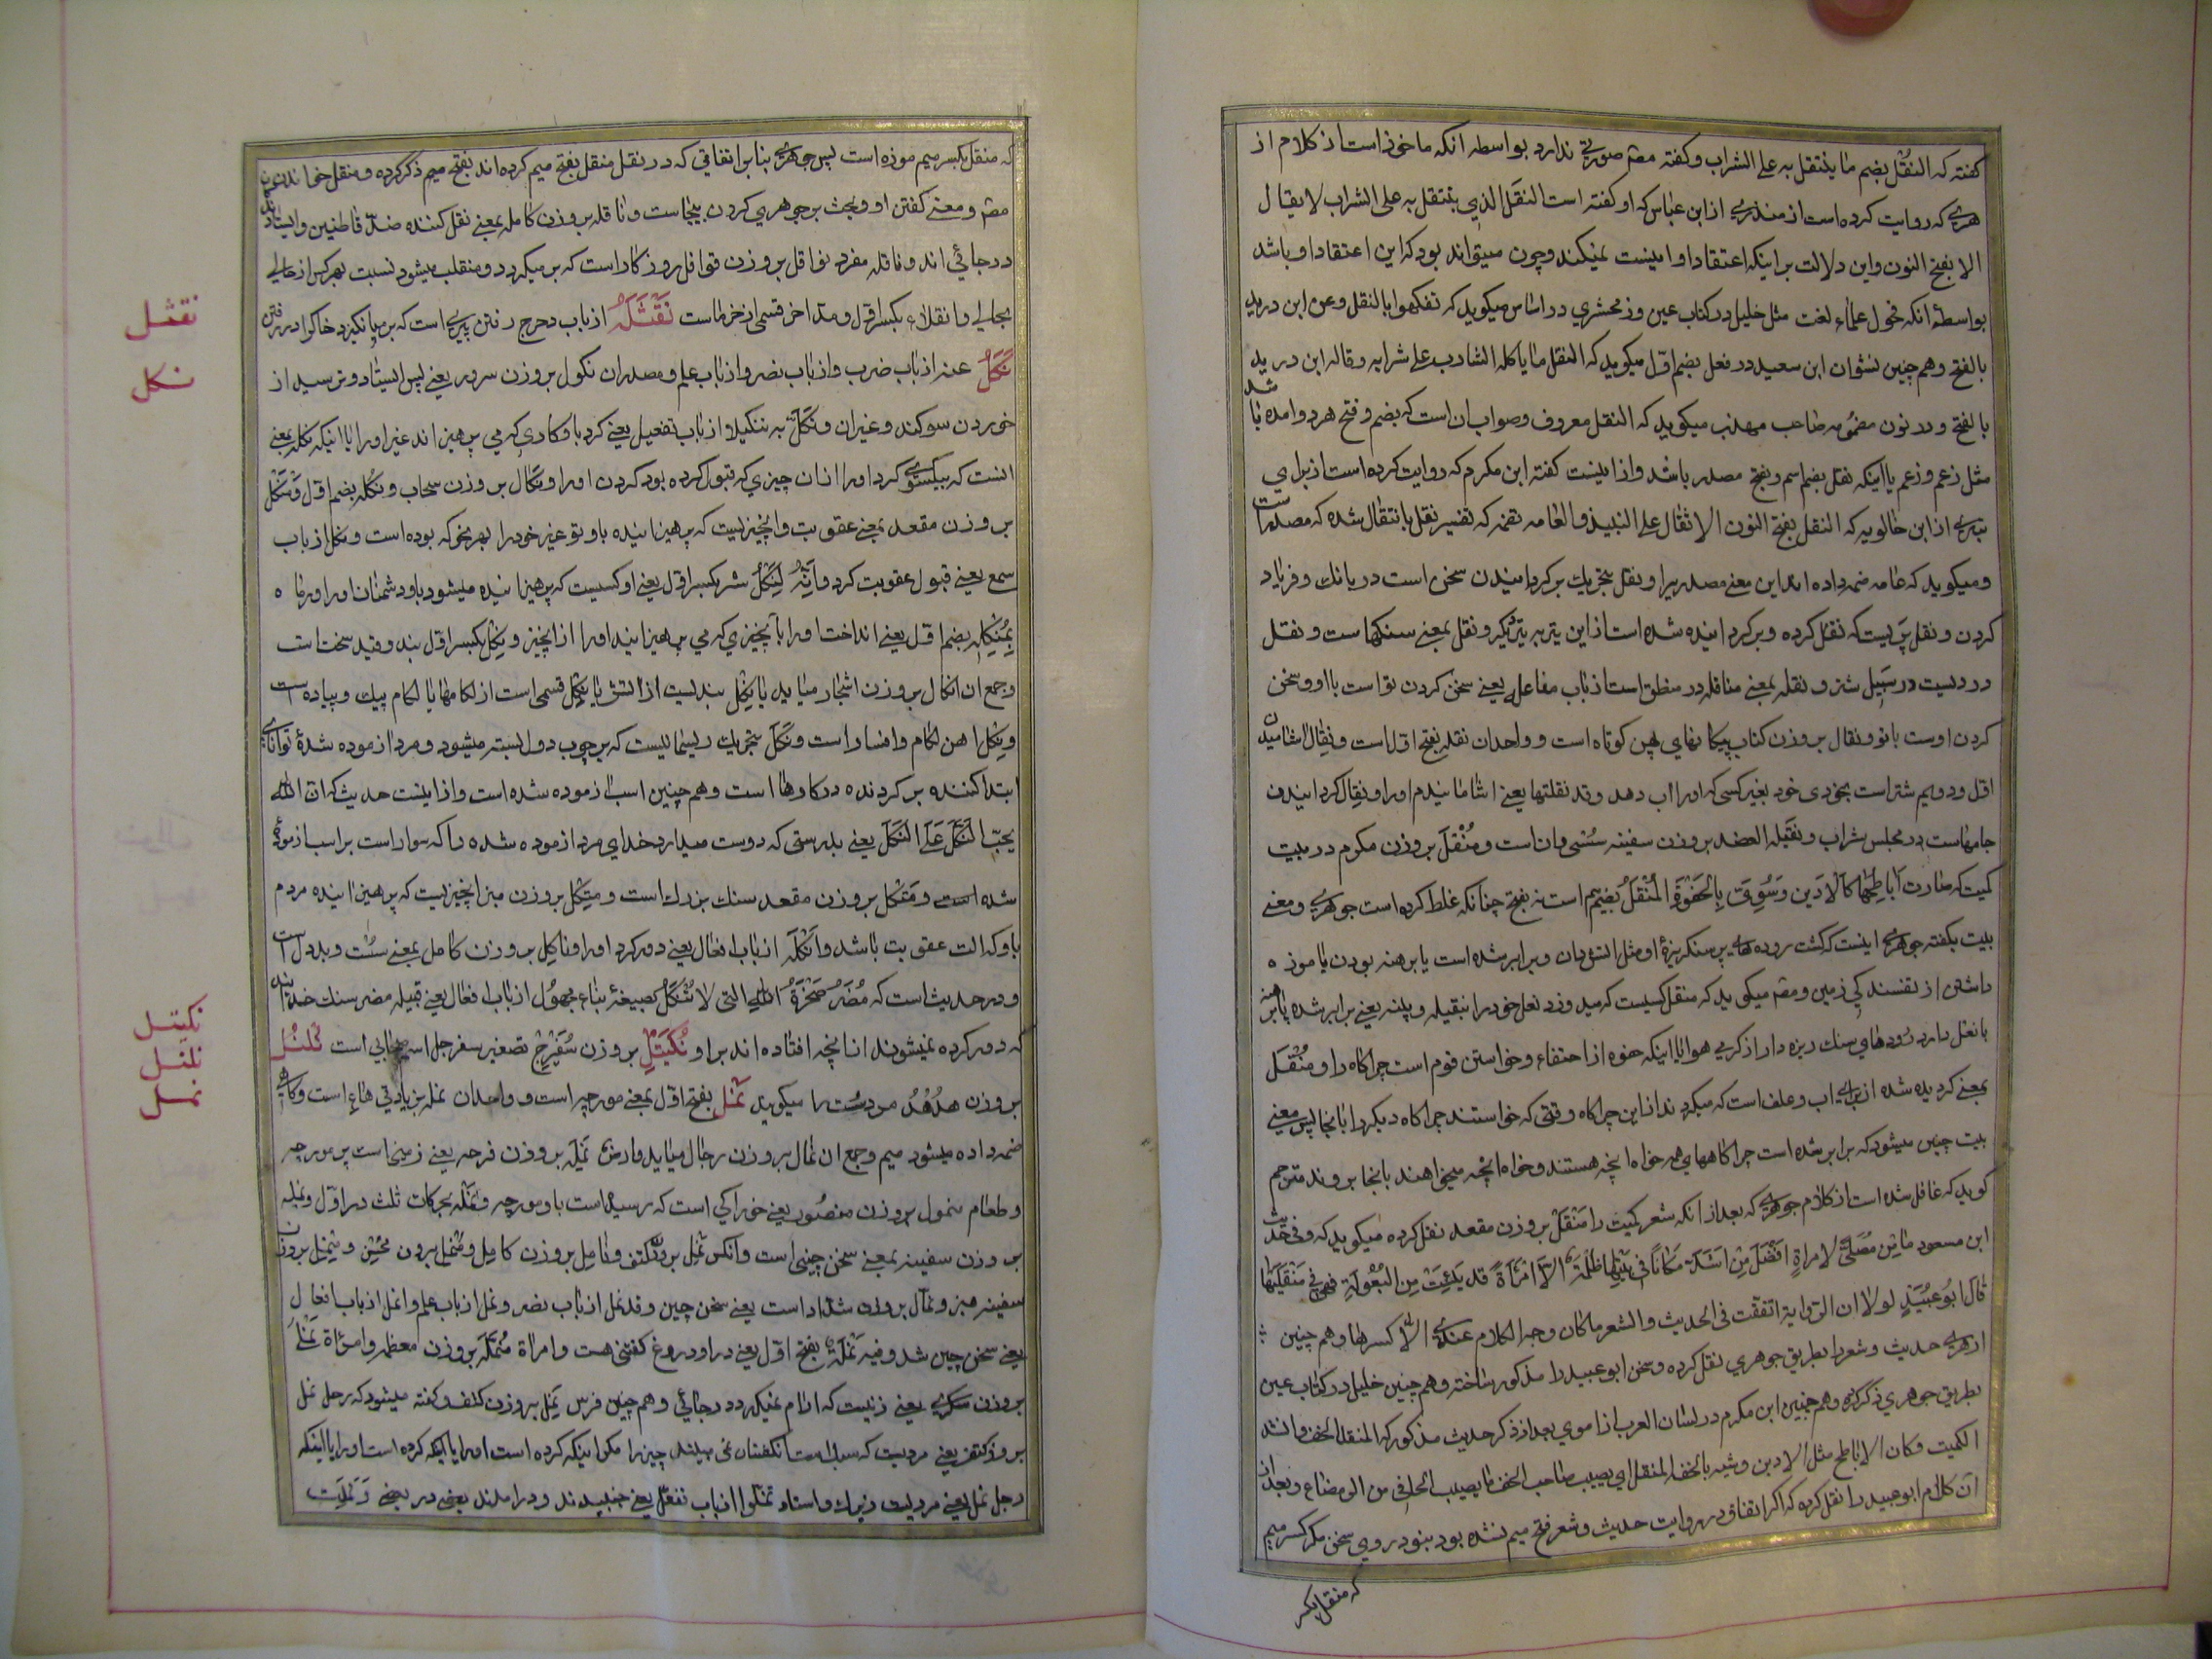 گفته که النقل بضم ما ینتقل به علی الشراب و گفته مصر صورتی ندارد بواسطه انکه ماخوذ است از کلام از
هری که روایت کرده است از منذری از ابن عباس که او گفته است النقل الذی ینتقل به علی الشراب لا یقال
الا بفتح النون و این دلالت بر اینکه اعتقاد او اینست نمیکند و چون میتواند بود که این اعتقاد او باشد
بواسطهٔ انکه فحول علماء لغت مثل خلیل در کتاب عین و زمخشری در اساس میکوید که تفکهوا بالنقل و عن ابن درید
بالفتح و هم چنین نشوان ابن سعید در فعل بضم اوّل میکوید که النقل ما یاکله الشارب علی شرابه و قاله ابن درید
بالفتح و در نون مضمومه صاحب مهذب میکوید که النقل معروف و صواب ان است که بضم و فتح هر دو امده باشد
مثل زعم و زعم یا اینکه نقل بضم اسم و بفتح مصدر باشد و از اینست گفته ابن مکرم که روایت کرده است از برای
از ابن خالویه که النقل بفتح النون الانتقال علی النبیذ و العامه تضمه که تفسیر نقل بانتقال شده که مصدر است
و میکوید که عامه ضمه داده اند این معنی مصدر یرا و نقل بتحریك بر کردانیدن سخن است در بانك و فریاد
کردن و نقل پریست که نقل کرده و بر کردانیده شده است از این یتر به یتر دیکر و نقل بمعنی سنکهاست و نقل
دردیست در سبیل شتر و نقله بمعنی مناقله در منطق است از باب مفاعله یعنی سخن کردن تو است با او و سخن
کردن اوست با تو و نقال بر وزن کتاب پیکانهای پهن کوتاه است و واحدان نقله بفتح اوّل است و نقال اشامیدن
اوّل و دویم شتر است بخودی خود بغیر کسی که او را اب دهد و قد نقلتها یعنی اشامانیدم او را و نقال کردانیدن
جامهاست در مجلس شراب و نقیله العضد بر وزن سفینه سستی ران است و منقل بر وزن مکرم در بیت
کمیت که صارت اباطحها کالارین و سوی بالحفوة المنقل بضم میم است نه بفتح چنانکه غلط کرده است جوهری و معنی
بیت بکفته جوهری اینست که کشت روده های پر سنکریزهٔ او مثل اتش دان و برابر شده است یا برهنه بودن یا موزه
داشتن از تفسند کی زمین و مصر میکوید که منقل کسیست که میدوزد نعل خود را بنقیله و پینه یعنی برابر شده پا برهنه
با نعل دار در رودهای سنك ریزه دار از کرمی هوا یا اینکه حفوه از احتفاء و خواستن قوم است چراکاه را و منقل
بمعنی کردیده شده از برای اب و علف است که میکردند از این چراکاه وقتی که خواستند چراکاه دیکر را بانجا پس معنی
بیت چنین میشود که برابر شده است چراکاههای هر خواه انچه هستند و خواه انچه میخواهند بانجا بروند مترجم
کوید که غافل شده است از کلام جوهری که بعد از انکه شعر کمیت را منقل بر وزن مقعد نقل کرده میکوید که و فی حدیث
ابن مسعود ما من مصلی لامراة افضل من اشد مکانا فی بیتها ظلمة الا امراة قد یئست من البعولة فهی فی منقلیها
قال ابو عبید لولا ان الروایة اتفقت فی الحدیث و الشعر ما کان وجه الکلام عندی الا کسرها و هم چنین
ازهری حدیث و شعر را بطریق جوهری نقل کرده و سخن ابو عبید را مذکور ساخته و هم چنین خلیل در کتاب عین
بطریق جوهری ذکر کرده و هم چنین ابن مکرم در لسان العرب از اموی بعد از ذکر حدیث مذکور که المنقل الخف و انشد
الکمیت و کان الاباطح مثل الارین و شبه بالخف المنقل ای یصیب صاحب الخف ما یصیب الحافی من الرمضاء و بعد از
ان کلام ابو عبید را نقل کرده که اکر اتفاق در روایت حدیث و شعر فتح میم نشده بود نبود روی سخن مکر کسر میم
که منقل بکسر
که منقل بکسر میم موزه است پس جوهری بنا بر اتفاقی که در نقل منقل بفتح میم کرده اند بفتح میم ذکر کرده و منقل خواندن
مصر و معنی کفتن او و بحث بر جوهری کردن بیجاست و ناقله بر وزن کامله بمعنی نقل کننده ضد قاطنین و ایستادکان
در جائی اند و ناقله مفرد نواقل بر وزن قوافل روز کار است که بر میکردد و منقلب میشود نسبت بهر کس از حالی
بحالی و انقلاء بکسر اوّل و مدّ اخر قسمی از خرماست نقثله از باب دحرج رفتن پیری است که بر میانکیزد خاکرا در رفتن
نکل عنه از باب ضرب و از باب نصر و از باب علم و مصدران نکول بر وزن سرور یعنی پس ایستاد و ترسید از
خوردن سوکند و غیر ان و نکل به تنکیلا از باب تفعیل یعنی کرد باو کاری که می پرهیزاند غیر او را یا اینکه نکله بمعنی
انست که بیکسو کرد او را از ان چیزی که قبول کرده بود کردن او را و نکال بر وزن سحاب و نکله بضم اوّل و منکل
بر وزن مقعد بمعنی عقوبت و انچیزیست که پرهیزانیده باو تو غیر خود را بهر نحو که بوده است و نکل از باب
سمع یعنی قبول عقوبت کرد و انه لنکل شر بکسر اوّل یعنی او کسیست که پرهیزانیده میشود باو دشمنان او را و رماه
بنکله بضم اوّل یعنی انداخت او را بانچیزی که می پرهیزانید او را از انچیز و نکل بکسر اوّل بند و قید سخت است
و جمع ان انکال بر وزن اشجار میاید یا نکل بندیست از اتش یا نکل قسمی است از لکامها یا لکام پیك و پیاده است
و نکل اهن لکام و افسار است و نکل بتحریك ریسمانیست که بر چوب دولا بسته میشود و مرد ازموده شدهٔ توانای
ابتدا کننده بر کردنده در کارها است و هم چنین اسب ازموده شده است و از اینست حدیث که ان الله
یحب النکل علی النکل یعنی بدرستی که دوست میدارد خدای مرد ازموده شده را که سوار است بر اسب ازموده
شده است و منکل بر وزن مقعد سنك بزرك است و منکل بر وزن منبر انچیزیست که پرهیزانیده مردم
باو که الت عقوبت باشد و انکله از باب افعال یعنی دور کرد او را و ناکل بر وزن کامل بمعنی سست و بددل است
و در حدیث است که مضر صخرة الله التی لا تنکل بصیغهٔ بناء مجهول از باب افعال یعنی قبیله مضر سنك خدایند
که دور کرده نمیشوند از انچه افتاده اند بر او نکیتل بر وزن سفیرج تصغیر سفرجل اسم صحابی است نلنل
بر وزن هدهد مرد سست را میکویند نمل بفتح اوّل بمعنی مورچه است و واحدان نمله بزیادتی هاء است و کاهی
ضمه داده میشود میم و جمع ان نمال بر وزن رجال میاید و ارض نملة بر وزن فرحه یعنی زمینی است پر مورچه
و طعام منمول بر وزن منصور یعنی خوراکی است که رسیده است باو مورچه و نمله بحرکات ثلث در اوّل و نمیله
بر وزن سفینه بمعنی سخن چینی است و انکس نمل بر وزن کتف و نامل بر وزن کامل و منمل بر وزن محسن و منمل بر وزن
سفینه منبر و نمال بر وزن شداد است یعنی سخن چین و قد نمل از باب نصر و نمل از باب علم و انمل از باب افعال
یعنی سخن چین شد و فیه نملة بفتح اوّل یعنی در او دروغ کفتنی هست و امراة منملة بر وزن معظمه و امراة نملی
بر وزن سکری یعنی زنیست که ارام نمیکیرد در جائی و هم چنین فرس نمل بر وزن کتف و کفته میشود که رجل نمل
بر وزن کتف یعنی مردیست که انکشتان نمی بیند چیزرا مکر اینکه کرده است او را یا اینکه کرده است او را یا اینکه
رجل نمل یعنی مردیست زیرك و استاد و تنملوا از باب تفعل یعنی جنبیدند و در امدند بعضی در بعضی و نملت
نقثل
نکل
نکیتل
نلنل
نمل